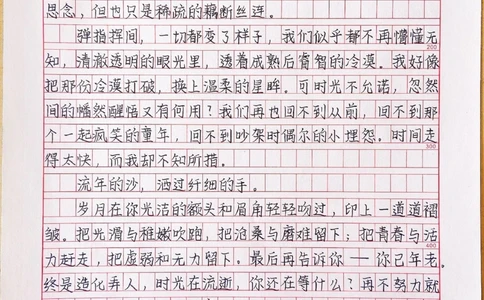 思念，但也只是稀疏的藕断丝连。
弹指挥间，一切都变了样子，我们似乎都不再懵懂无
200
知，清澈透明的眼光里，透着成熟后睿智的冷漠。我好像
把那份冷漠打破，换上温柔的星晖。可时光不允诺，忽然
间的幡然醒悟又有何用？我们再也回不到从前，回不到那
个一起疯笑的童年，回不到吵架时偶尔的小埋怨。时间走
300
得太快，而我却不知所措。
流年的沙，洒过纤细的手。
岁月在你光洁的额头和眉角轻轻吻过，印上一道道褶
皱。把光滑与稚嫩吹跑，把沧桑与磨难留下；把青春与活
400
力赶走，把虚弱和无力留下。最后再告诉你——你已年老。
终是造化弄人，时光在流逝，你还在等什么？再不努力就